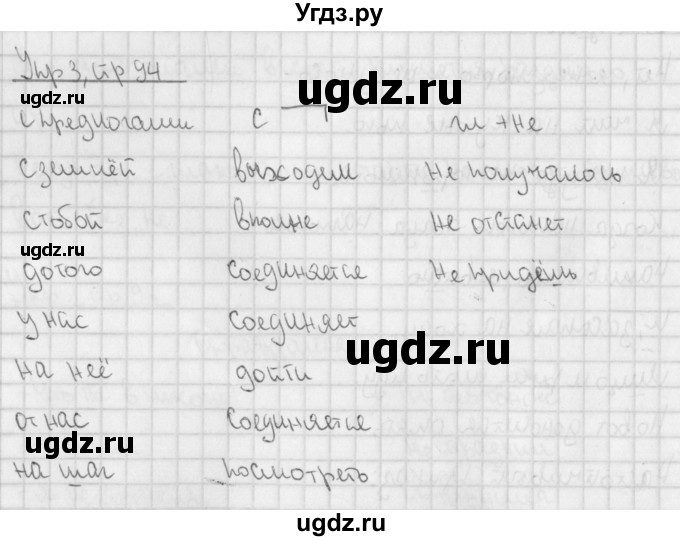 Угдз.ру
Упр 3, стр 94
ugdz.ru ugdz.ru
с предлогами с гл + не
с землёй выходим не получалось
с тобой вполне не отстанет
ugdz.ru
до того соединяется не придёшь
у нас соединяет
ugdz.ru
на неё дойти
от нас соединяется
ugdz.ru
на шаг посмотреть
ugdz.ru